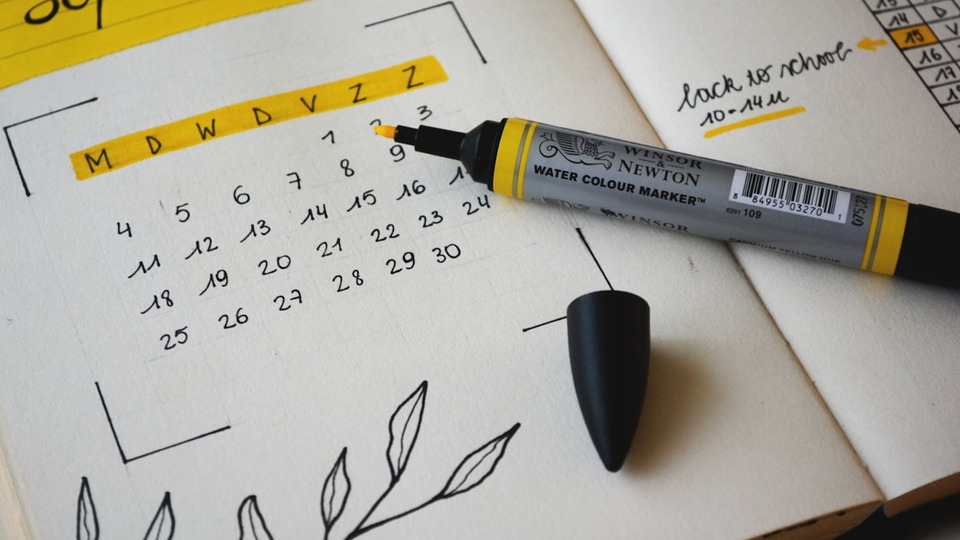 M D W D V Z Z
1 2 3
4 5 6 7 8 9
11 12 13 14 15 16
18 19 20 21 22 23 24
25 26 27 28 29 30
WINSOR
&
NEWTON
WATER COLOUR MARKER™
8 84955 03270 1
0201 109
WINSOR
075/21
back to school
10-14u
14 D
15 V
16
17